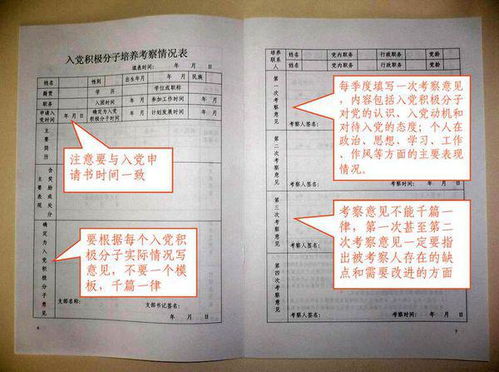 入党积极分子培养考察情况表
填表时间: 年 月 日
姓名 性别 出生年月 民族
籍贯 学历 学位或职称
职务 入团时间 参加工作时间
申请入党时间 年 月 日 确定为入党积极分子时间 计划发展时间 年 月 日
主要简历
主要表现
含奖励或处分
确定为入党积极分子意见
支部名称: 支部书记签名:
年 月 日
注意要与入党申
请书时间一致
要根据每个入党积
极分子实际情况写
意见，不要一个模
板，千篇一律
6
培养联系人
姓名 党内职务 行政职务 党龄
姓名 党内职务 行政职务 党龄
第一次考察意见
考察人签名:
第二次考察意见
考察人签名: 考察时间: 年 月 日
第三次考察意见
考察人签名:
第四次考察意见
考察人签名: 考察时间: 年 月 日
每季度填写一次考察意见
，内容包括入党积极分子
对党的认识、入党动机和
对待入党的态度；个人在
政治、思想、学习、工作
、作风等方面的主要表现
情况。
考察意见不能千篇一
律，第一次甚至第二
次考察意见一定要指
出被考察人存在的缺
点和需要改进的方面
7